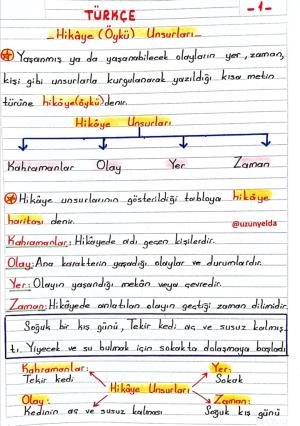 TÜRKÇE
-1-
Hikâye (Öykü) Unsurları
Yaşanmış ya da yaşanabilecek olayların yer, zaman,
kişi gibi unsurlarla kurgulanarak yazıldığı kısa metin
türüne hikâye(öykü) denir.
Hikâye Unsurları
Kahramanlar Olay Yer Zaman
Hikâye unsurlarının gösterildiği tabloya hikâye
haritası denir.
@uzunyelda
Kahramanlar: Hikâyede adı geçen kişilerdir.
Olay: Ana karakterin yaşadığı olaylar ve durumlardır.
Yer: Olayın yaşandığı mekân veya çevredir.
Zaman: Hikâyede anlatılan olayın geçtiği zaman dilimidir.
Soğuk bir kış günü, Tekir kedi aç ve susuz kalmış-
tı. Yiyecek ve su bulmak için sokakta dolaşmaya başladı
Kahramanlar: Yer:
Tekir kedi Sokak
Hikâye Unsurları
Olay: Zaman:
Kedinin aç ve susuz kalması Soğuk kış günü